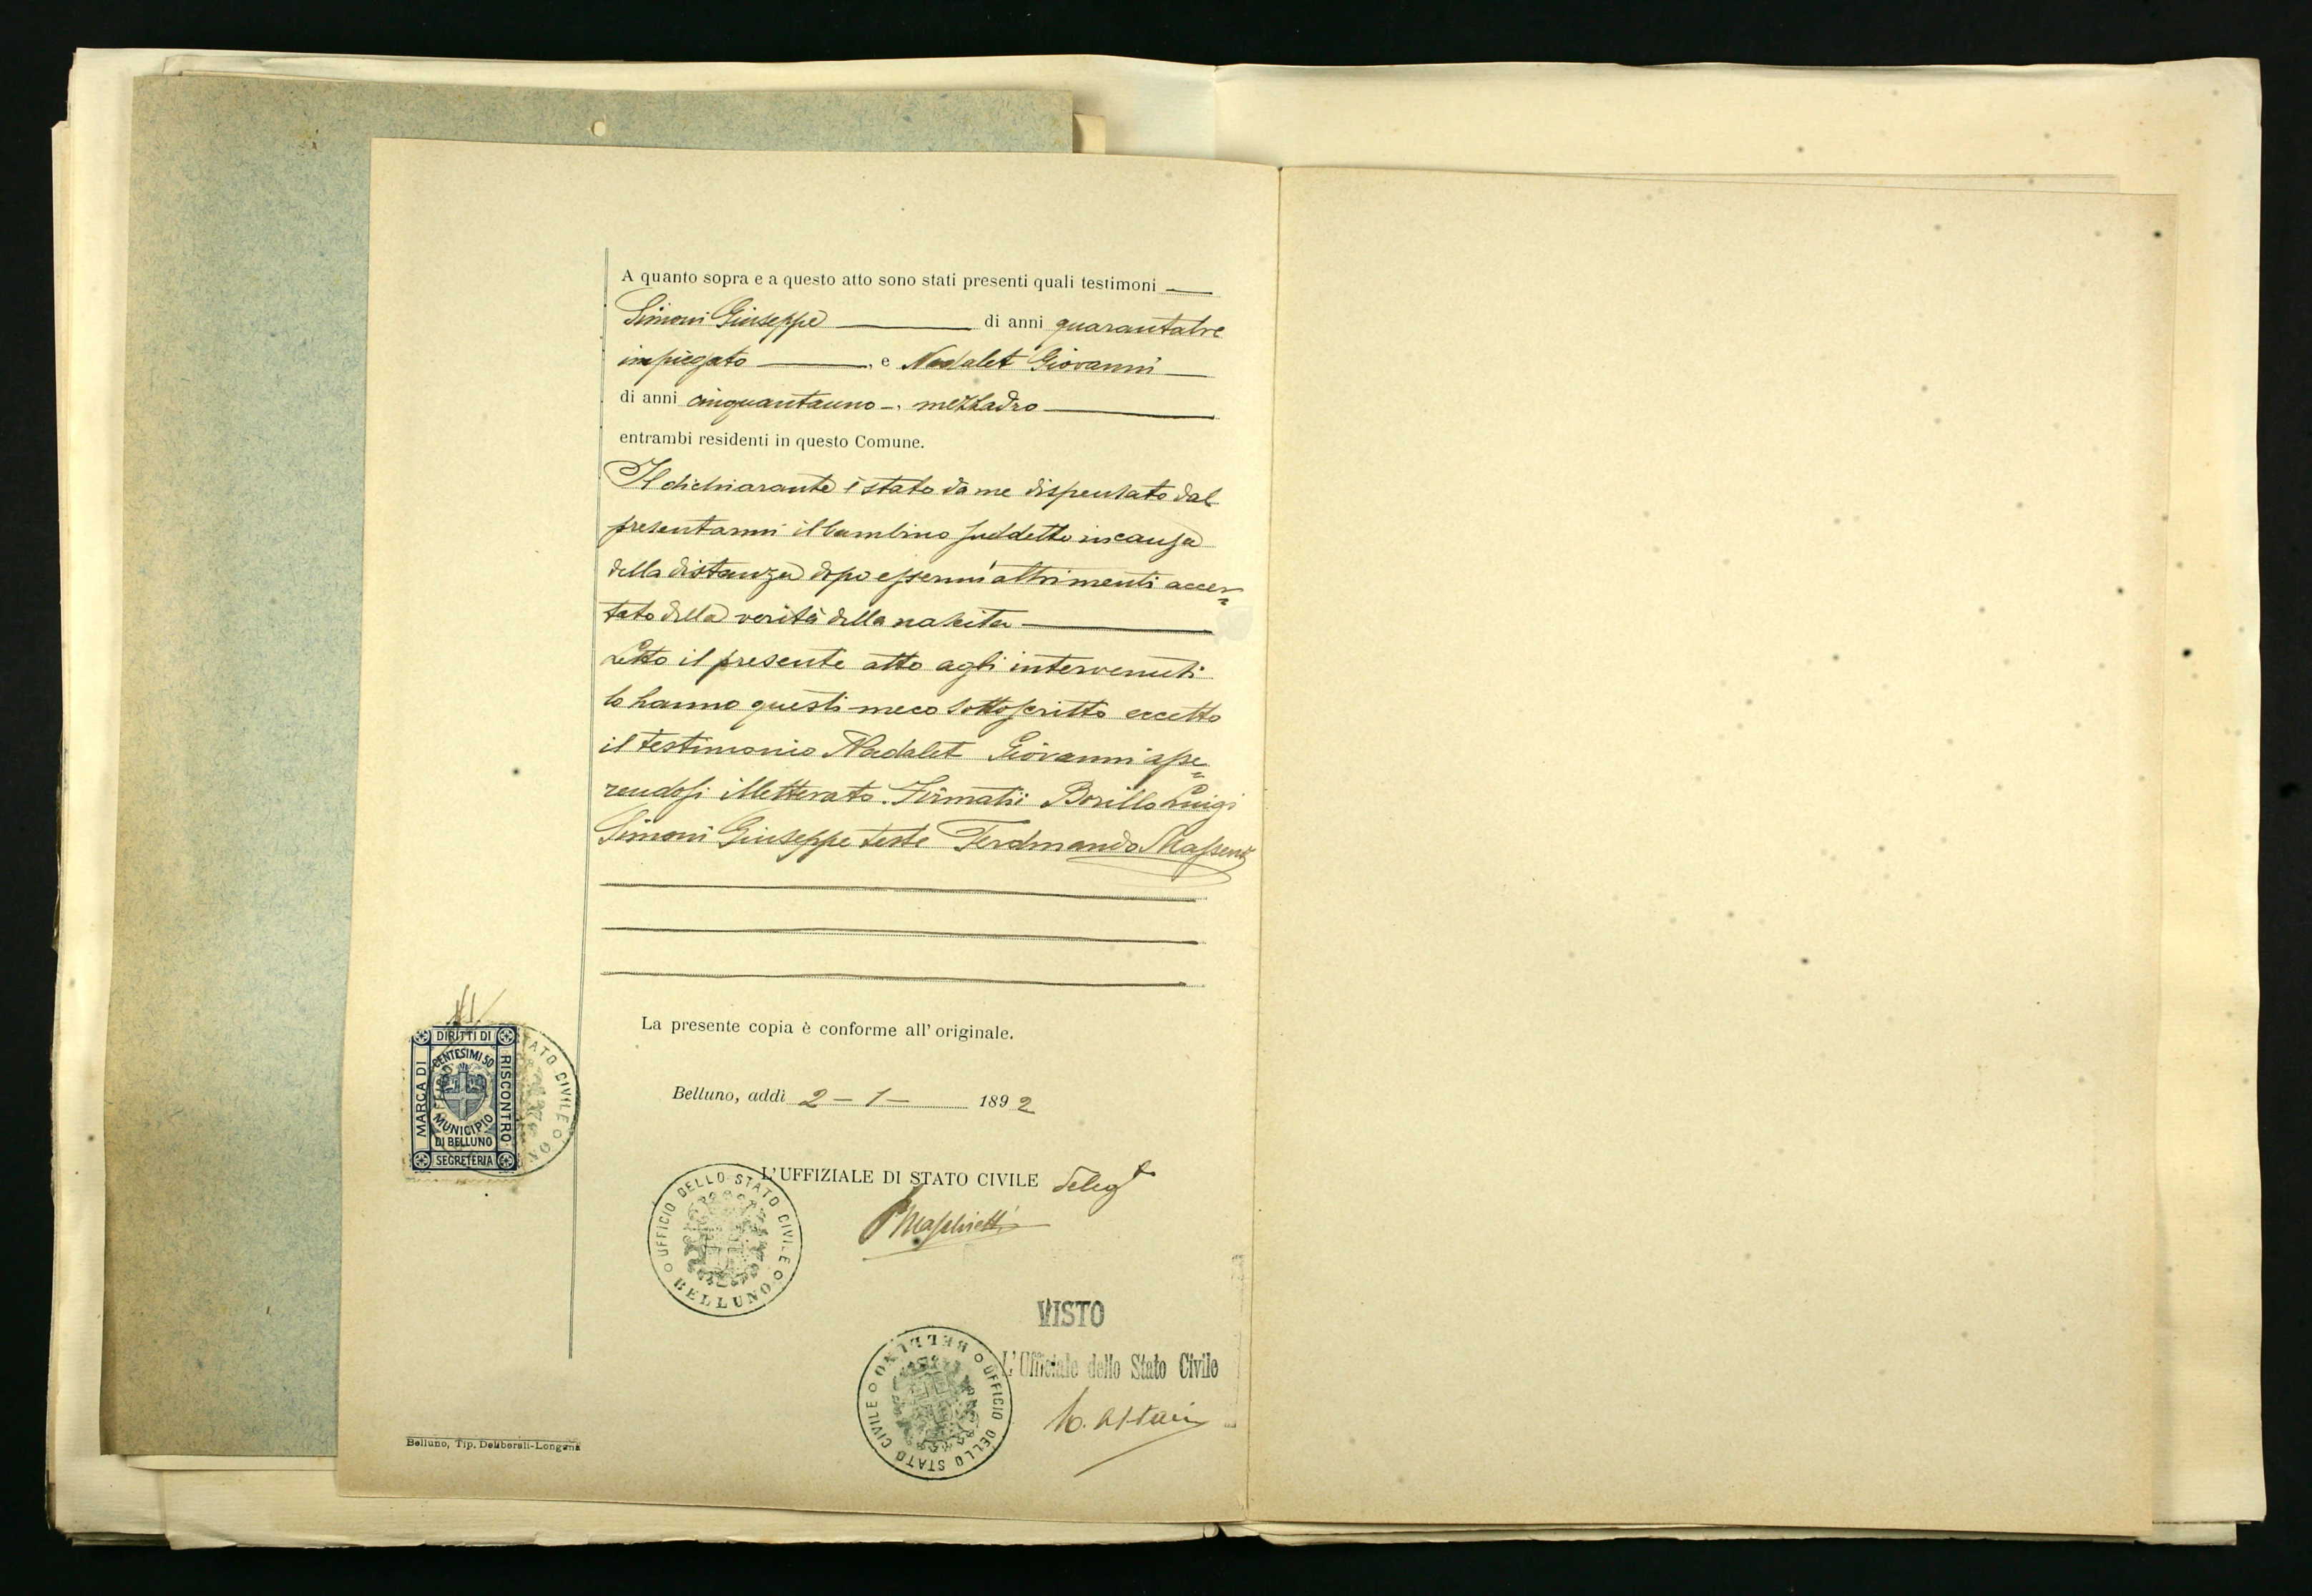 A quanto sopra e a questo atto sono stati presenti quali testimoni
Simoni Giuseppe di anni quarantatre
impiegato, e Nadalet Giovanni
di anni cinquantauno, mezzadro
entrambi residenti in questo Comune.
Il dichiarante è stato da me dispensato dal
presentarmi il bambino suddetto in causa
della distanza dopo essermi altrimenti accer=
tato della verità della nascita
Letto il presente atto agli intervenuti
lo hanno questi meco sottoscritto eccetto
il testimonio Nadalet Giovanni asse=
rendosi illetterato. Firmati: Luigi
Simoni Giuseppe teste Ferdinando
La presente copia è conforme all'originale.
Belluno, addì 2 - 1 - 1892
L'UFFIZIALE DI STATO CIVILE deleg.t
MARCA DI DIRITTI DI RISCONTRO
CENTESIMI 50
MUNICIPIO
DI BELLUNO
SEGRETERIA
UFFICIO DELLO STATO CIVILE
BELLUNO
VISTO
L'Ufficiale dello Stato Civile
UFFICIO DELLO STATO CIVILE
BELLUNO
Belluno, Tip. Deliberali-Longana